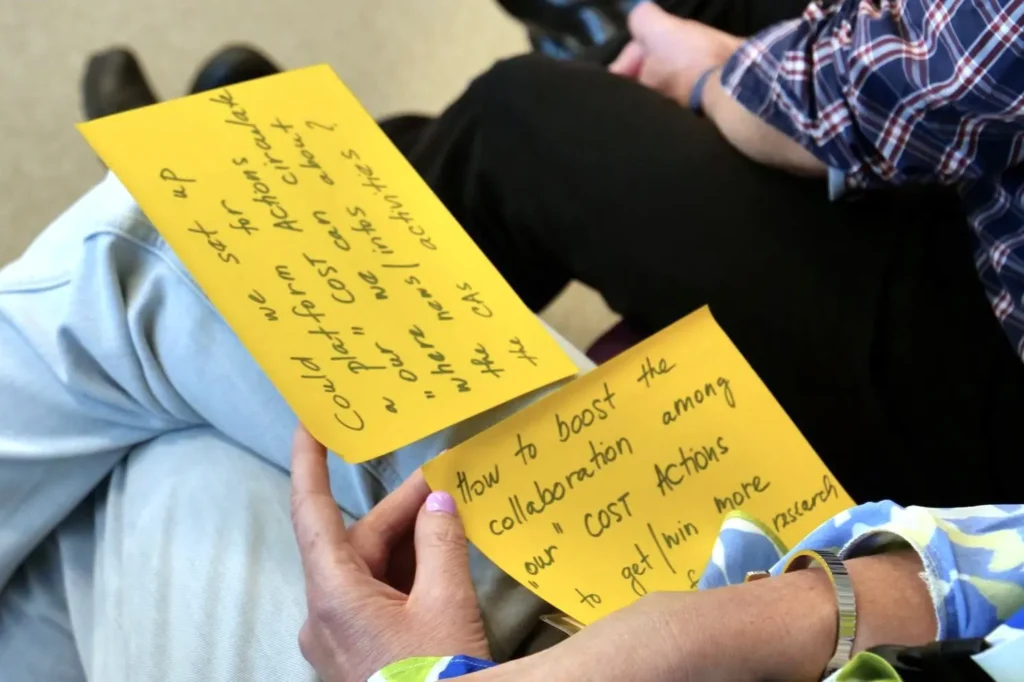 Could we set up
a platform for
"our" COST Actions
where we can circulate
the news/infos about
the CAs activities?
How to boost the
collaboration among
"our" COST Actions
to get/win more
research